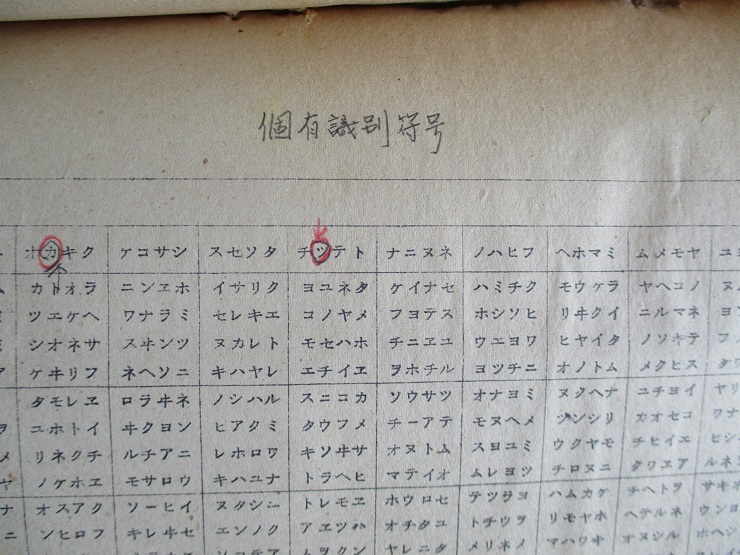 個有識別符号
オカキク ケコサシ スセソタ チツテト ナニヌネ ノハヒフ ヘホマミ ムメモヤ ユ
カトオラ ニンヱホ イサリク ヨユネタ ケイナセ ハミチク モウケラ ヤヘコノ
ツエケヘ ワナラミ セレキエ コノヤメ フヨテス ホシソヒ リヰクイ ニルマネ ヨ
シオネサ スヰンツ ヌカレト モセハホ チニヱユ ウエヨワ ヒヤイタ ノソキテ フ
ケヰリフ ネヘソニ キハヤレ エチイヱ ヲホチル ヨツチニ オノトム メクヒス タ
タモレヱ ロラヰネ ノシハル スニコカ ソウサツ オナヨミ ヌクヘナ ユチヨイ ヤリ
ユホトイ ヰクヨン ヒアクミ タウフメ チーアテ モヌヘメ ツンシリ カオセコ ワナ
リネクチ ルチアニ レホロワ キソヰサ オヌトム スヨユミ ウクヤモ チヒイエ ヒシ
ノケホヱ モサロウ キハユナ トラヘヒ マテイオ ムレヨツ チロヌニ タワエア ルネ
オスアク ソーヒイ ヌタシニ トレモヱ ホウロセ テツラヨ ハムカケ チヘトヲ サキ
ンヒロフ キレヰセ エンノク アヱツハ オチタユ トチウヲ リモヤホ ヘテルネ ウン
ムヲクン ヤレニタ メリネノ マハワキ オヌシル